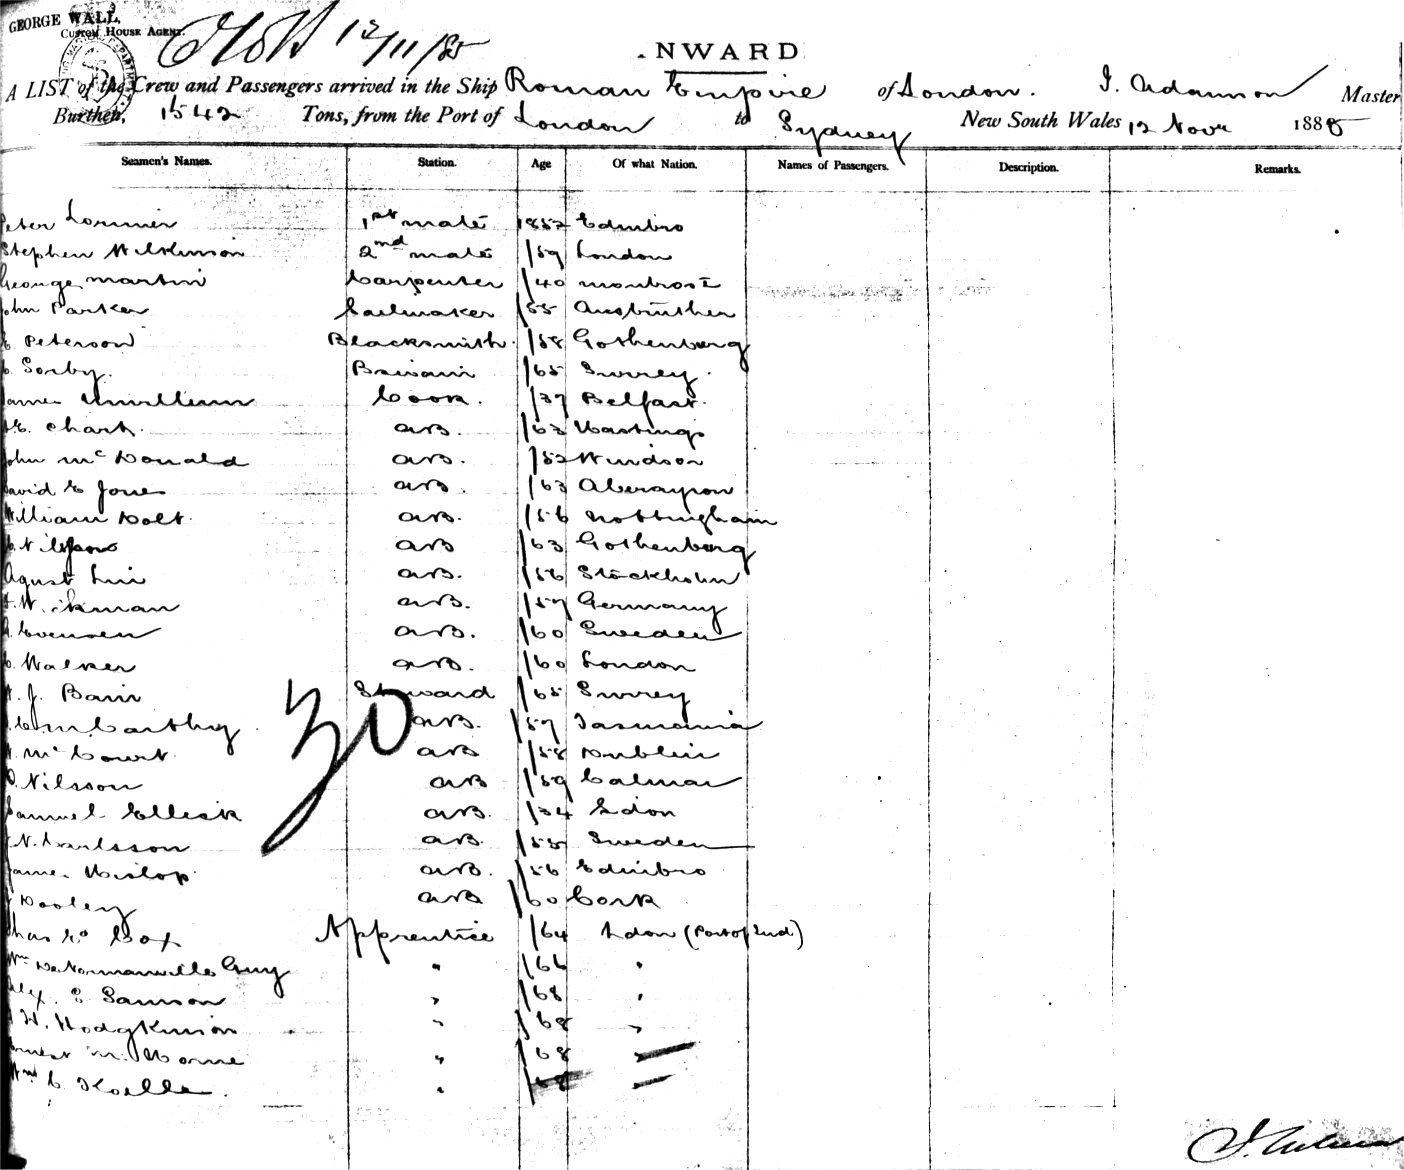 GEORGE WALL,
CUSTOM HOUSE AGENT.
12/11/85
NWARD
A LIST of the Crew and Passengers arrived in the Ship Roman Empire of London. J. Adamson Master
Burthen, 1542 Tons, from the Port of London to Sydney New South Wales 12 Novr 1885
Seamen's Names. Station. Age Of what Nation. Names of Passengers. Description. Remarks.
Peter Lorimer 1st mate 1852 Edinbro
Stephen Wilkinson 2nd mate /59 London
George Martin Carpenter /40 Montrose
John Parker Sailmaker /55 Anstruther
Peterson Blacksmith. /58 Gothenberg
Sorby. Boswain /65 Surrey.
James Cook. /37 Belfast.
Chark. AB. /63 Hastings
John McDonald AB. /52 Windsor
David E Jones AB. /63 Aberayron
William Holt. AB. /56 Nottingham
AB /63 Gothenberg
August AB. /56 Stockholm
AB. /59 Germany
Evensen AB. /60 Sweden
C. Walker AB. /60 London
J. Bain Steward /65 Surrey
McCarthy AB. /57 Tasmania
McCourt. AB /58 Dublin
Nilsson AB /59 Calmar
Samuel Ellick AB. /34 Ldon
N. Carlsson AB. /55 Sweden
James Hislop. AB. /56 Edinbro
Dooley AB /60 Cork
30
Chas Ed Cox Apprentice /64 Ldon (Port of Ind)
Wm De Normanville Guy " /66 "
Alex. S Samson " /68 "
H. Hodgkinson " /68 "
Ernest M. Horne " /68 "
Wm C " /68